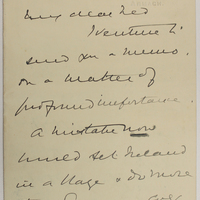 My dear Red
I venture to
send you a memo.
on a matter of
profound importance.
A mistake now
would set Ireland
in a blaze & do more